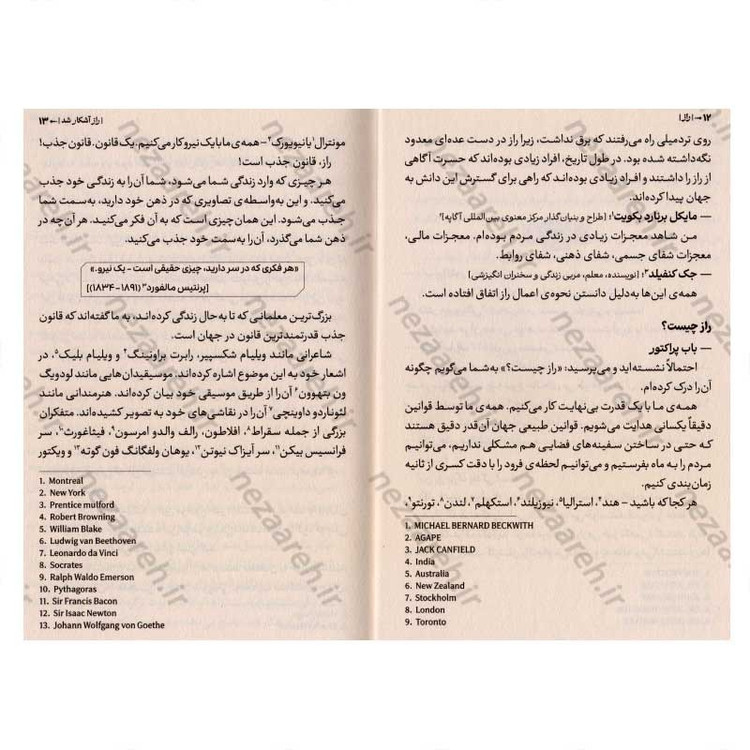 ۱۲ → | راز |
روی تردمیلی راه می‌رفتند که برق نداشت، زیرا راز در دست عده‌ای معدود
نگه‌داشته شده بود. در طول تاریخ، افراد زیادی بوده‌اند که حسرت آگاهی
از راز را داشتند و افراد زیادی بوده‌اند که راهی برای گسترش این دانش به
جهان پیدا کرده‌اند.
— مایکل برنارد بکویت¹: [طراح و بنیان‌گذار مرکز معنوی بین‌المللی آگاپه²]
من شاهد معجزات زیادی در زندگی مردم بوده‌ام. معجزات مالی،
معجزات شفای جسمی، شفای ذهنی، شفای روابط.
— جک کنفیلد³: [نویسنده، معلم، مربی زندگی و سخنران انگیزشی]
همه‌ی این‌ها به‌دلیل دانستن نحوه‌ی اعمال راز اتفاق افتاده است.
راز چیست؟
— باب پراکتور
احتمالاً نشسته‌اید و می‌پرسید: «راز چیست؟» به‌شما می‌گویم چگونه
آن‌را درک کرده‌ام.
همه‌ی ما با یک قدرت بی‌نهایت کار می‌کنیم. همه‌ی ما توسط قوانین
دقیقاً یکسانی هدایت می‌شویم. قوانین طبیعی جهان آن‌قدر دقیق هستند
که حتی در ساختن سفینه‌های فضایی هم مشکلی نداریم، می‌توانیم
مردم را به ماه بفرستیم و می‌توانیم لحظه‌ی فرود را با دقت کسری از ثانیه
زمان‌بندی کنیم.
هر کجا که باشید – هند⁴، استرالیا⁵، نیوزیلند⁶، استکهلم⁷، لندن⁸، تورنتو⁹،
1. MICHAEL BERNARD BECKWITH
2. AGAPE
3. JACK CANFIELD
4. India
5. Australia
6. New Zealand
7. Stockholm
8. London
9. Toronto
| راز آشکار شد | ← ۱۳
مونترال¹ یا نیویورک² – همه‌ی ما با یک نیرو کار می‌کنیم. یک قانون. قانون جذب!
راز، قانون جذب است!
هر چیزی که وارد زندگی شما می‌شود، شما آن‌را به زندگی خود جذب
می‌کنید. و این به‌واسطه‌ی تصاویری که در ذهن خود دارید، به‌سمت شما
جذب می‌شود. این همان چیزی است که به آن فکر می‌کنید. هر آن‌چه در
ذهن شما می‌گذرد، آن‌را به‌سمت خود جذب می‌کنید.
«هر فکری که در سر دارید، چیزی حقیقی است - یک نیرو.»
[پرنتیس مالفورد³ (۱۸۹۱-۱۸۳۴)]
بزرگ‌ترین معلمانی که تا به‌حال زندگی کرده‌اند، به ما گفته‌اند که قانون
جذب قدرتمندترین قانون در جهان است.
شاعرانی مانند ویلیام شکسپیر، رابرت براونینگ⁴ و ویلیام بلیک⁵، در
اشعار خود به این موضوع اشاره کرده‌اند. موسیقیدان‌هایی مانند لودویگ
ون بتهوون⁶ آن‌را از طریق موسیقی خود بیان کرده‌اند. هنرمندانی مانند
لئوناردو داوینچی⁷ آن‌را در نقاشی‌های خود به تصویر کشیده‌اند. متفکران
بزرگی از جمله سقراط⁸، افلاطون، رالف والدو امرسون⁹، فیثاغورث¹⁰، سر
فرانسیس بیکن¹¹، سر آیزاک نیوتن¹²، یوهان ولفگانگ فون گوته¹³ و ویکتور
1. Montreal
2. New York
3. Prentice mulford
4. Robert Browning
5. William Blake
6. Ludwig van Beethoven
7. Leonardo da Vinci
8. Socrates
9. Ralph Waldo Emerson
10. Pythagoras
11. Sir Francis Bacon
12. Sir Isaac Newton
13. Johann Wolfgang von Goethe
nezaareh.ir
nezaareh.ir
nezaareh.ir
nezaareh.ir
nezaareh.ir
nezaareh.ir
nezaareh.ir
nezaareh.ir
nezaareh.ir